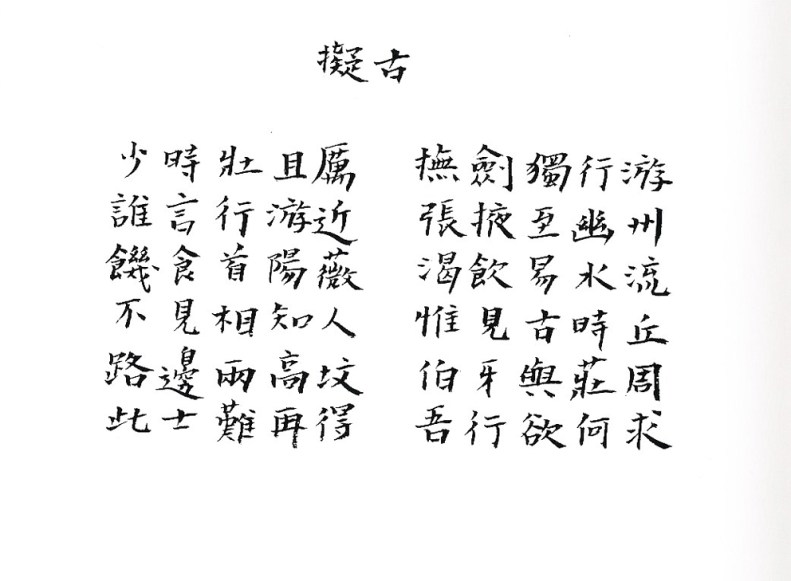 擬古
少時壯且厲 撫劍獨行游
誰言行游近 張掖至幽州
饑食首陽薇 渴飲易水流
不見相知人 惟見古時丘
路邊兩高坟 伯牙與莊周
此士難再得 吾行欲何求